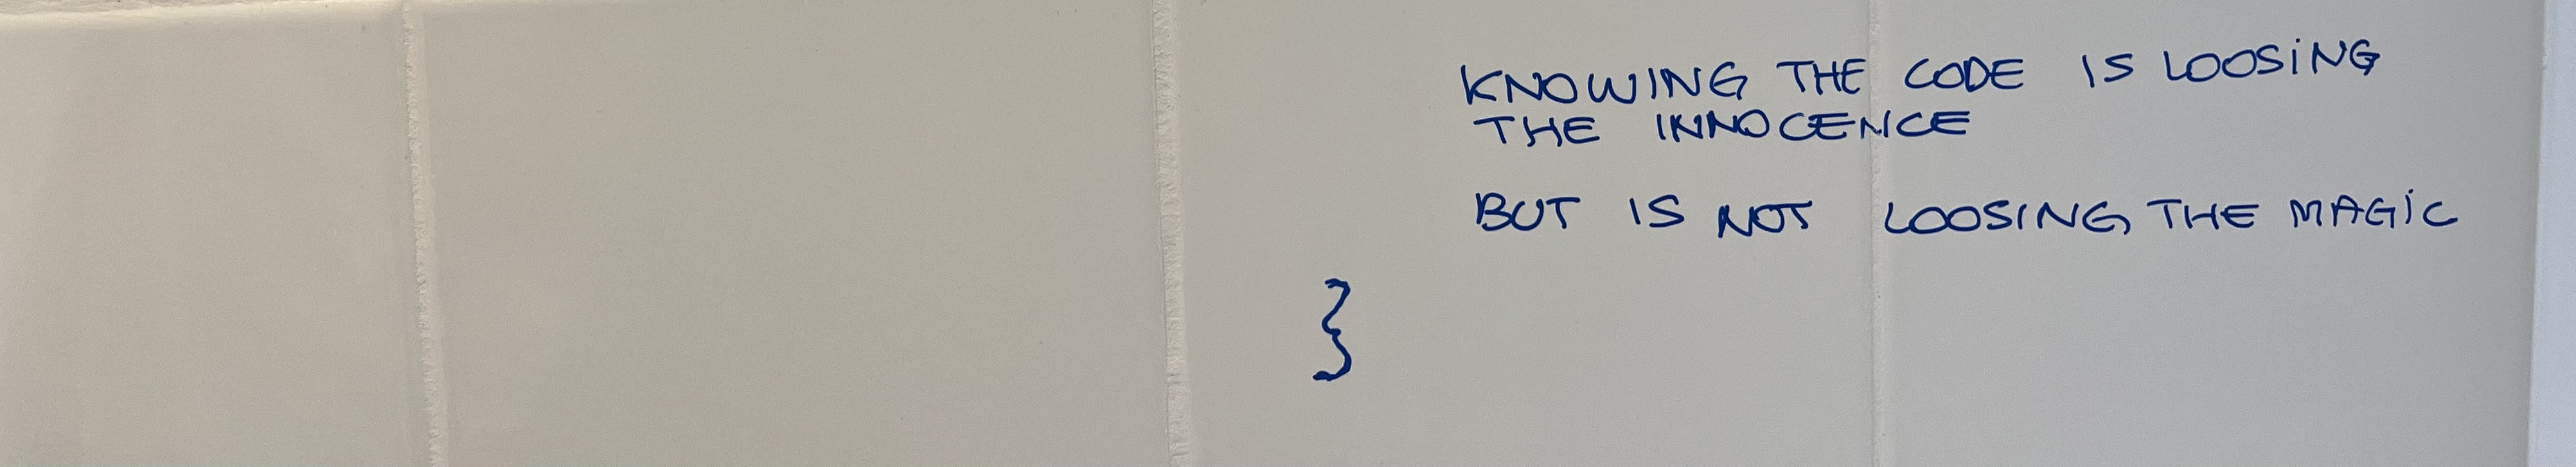 KNOWING THE CODE IS LOOSING
THE INNOCENCE
BUT IS NOT LOOSING THE MAGIC
}